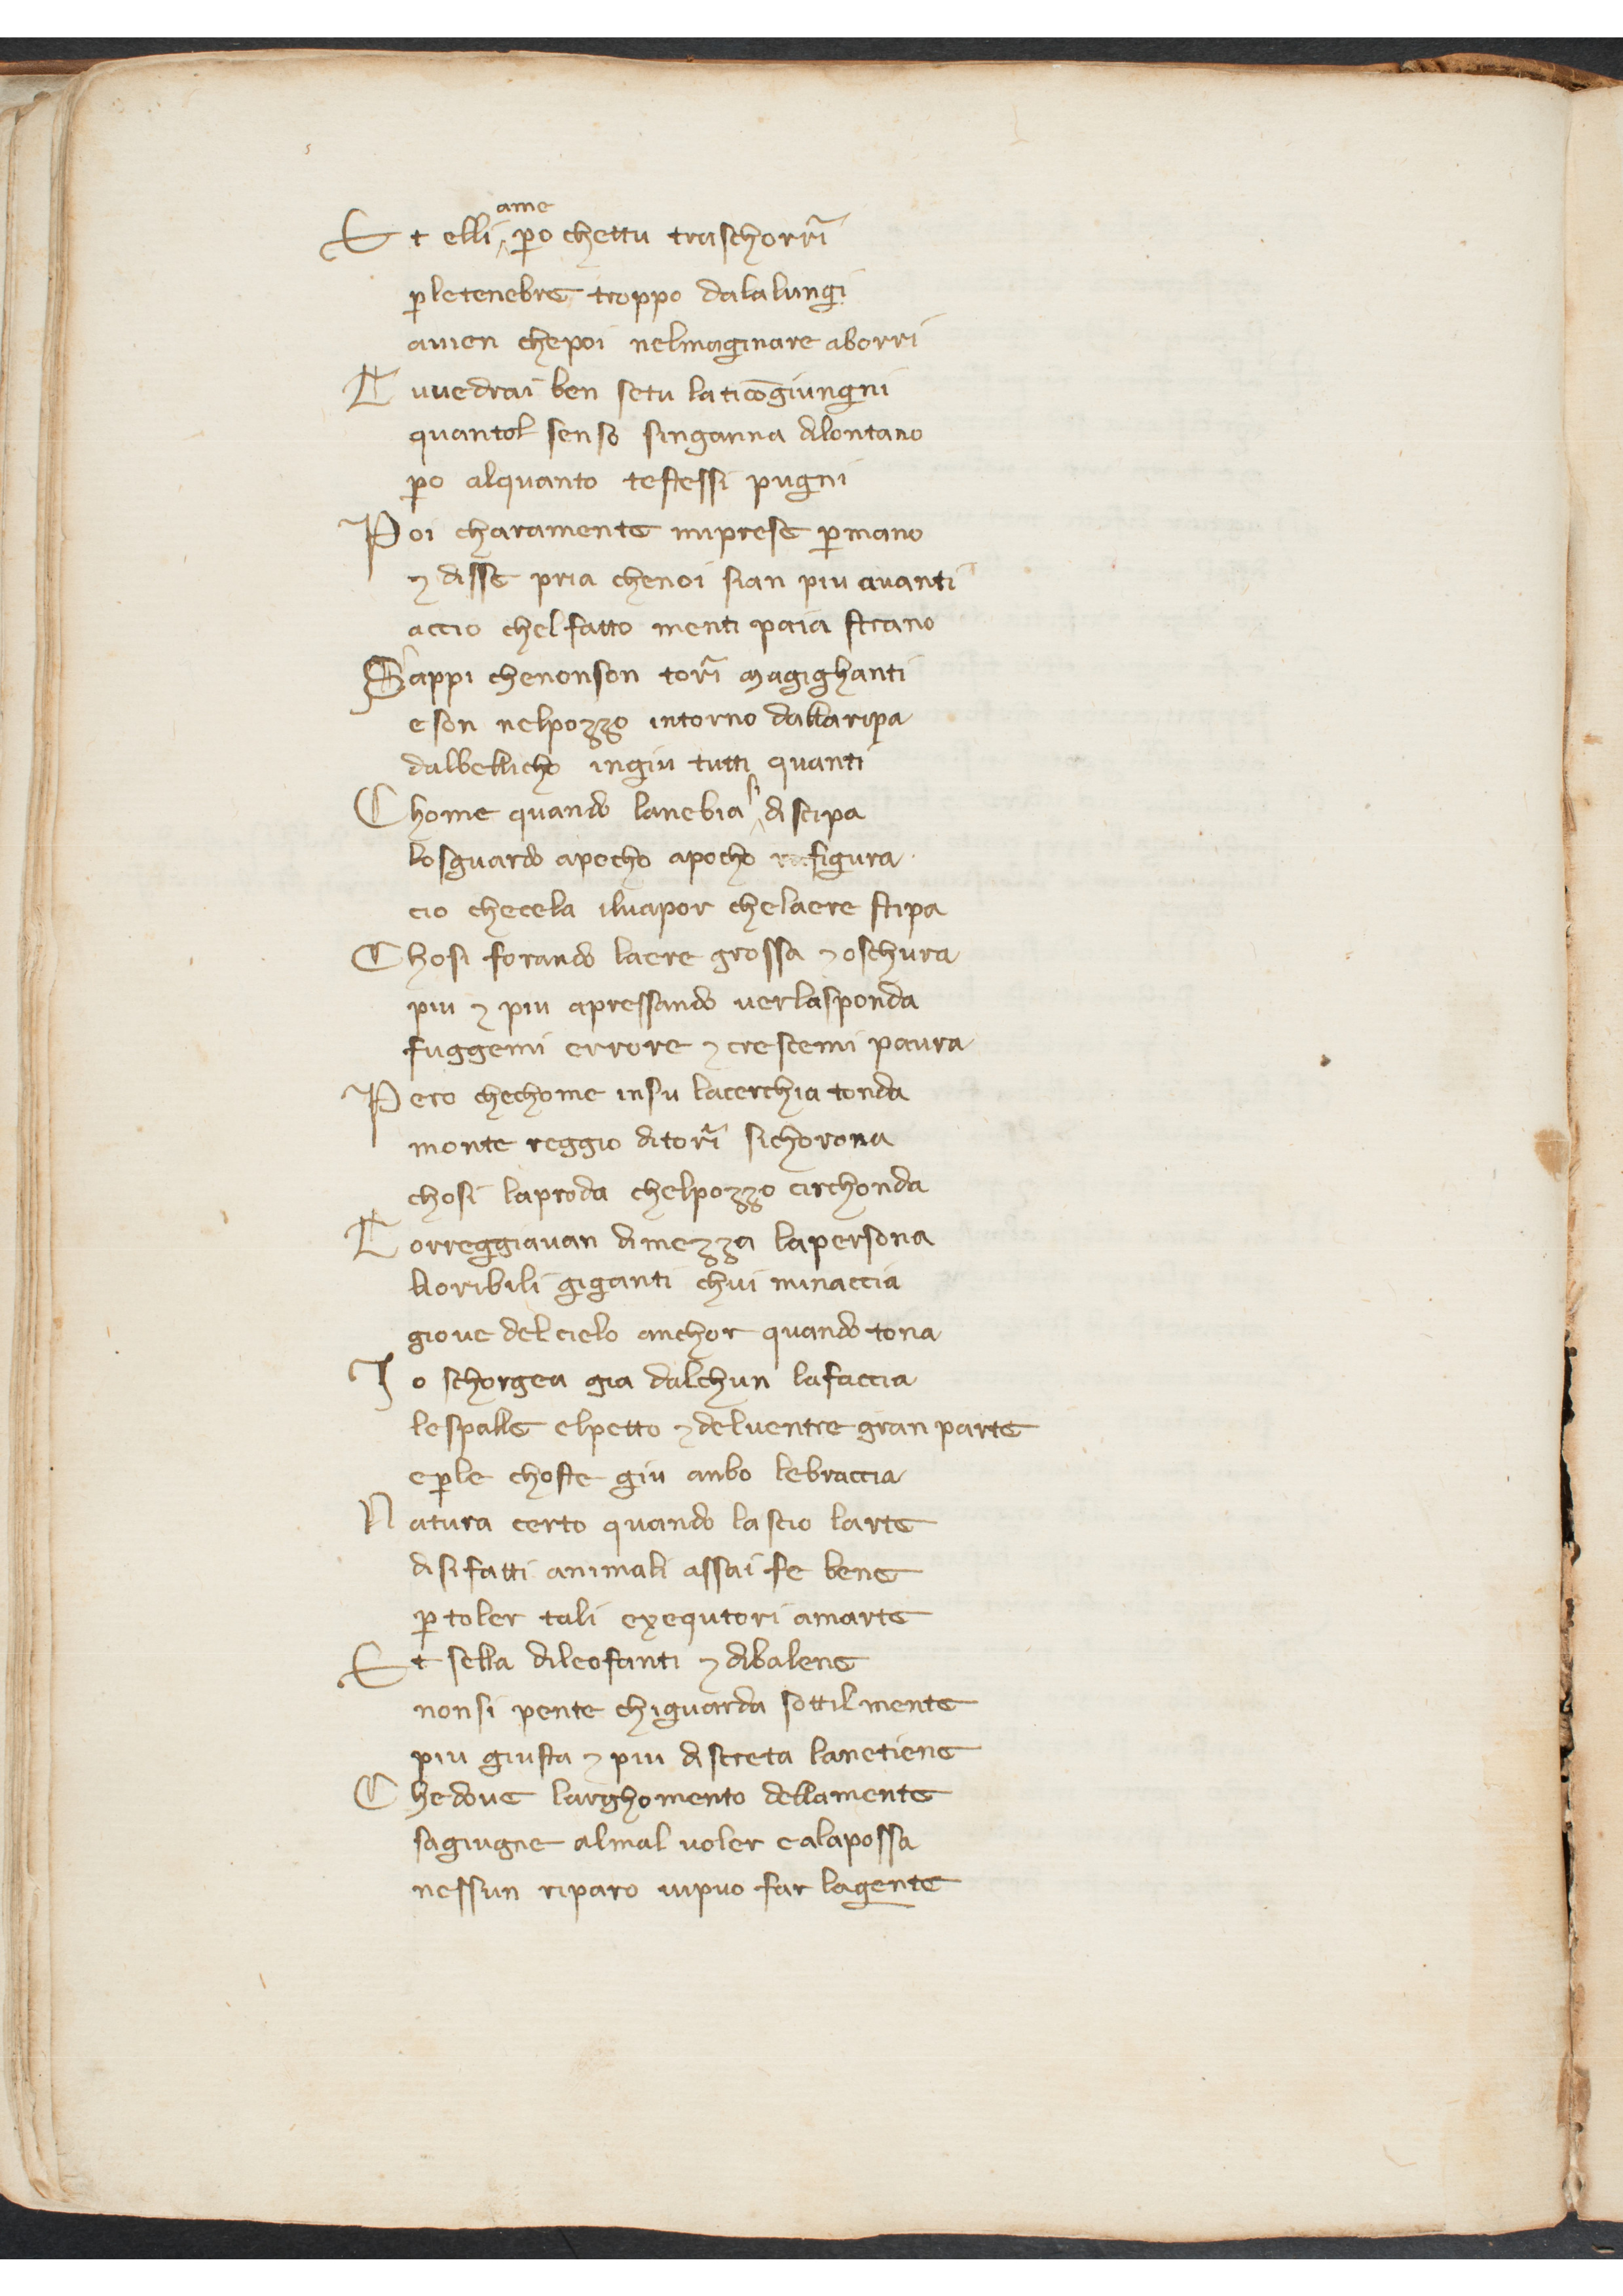 Et elli ame ꝑo chettu traschorrĩ
ꝑletenebre troppo dalalungi
auien chepoi nelmaginare aborri
Tu uedrai ben setu laticõgiungni
quantol senso singanna dilontano
ꝑo alquanto testessi pugni
Poi charamente miprese ꝑmano
⁊ disse pria chenoi sian piu auanti
accio chelfatto menti paia strano
Sappi chenonson torĩ magighanti
eson nelpozzo intorno dallaripa
dalbellicho ingiu tutti quanti
Chome quando lanebia si discipa
losguardo apocho apocho rafigura
cio checela iluapor chelaere stipa
Chosi forando laere grossa ⁊ oschura
piu ⁊ piu apressando uerlasponda
fuggemi errore ⁊ crescemi paura
Pero chechome insu lacerchia tonda
monte reggio ditorĩ sichorona
chosi laproda chelpozzo circhonda
Torreggiauan dimezza lapersona
lioribili giganti chui minaccia
gioue delcielo anchor quando tona
Io schorgea gia dalchun lafaccia
lespalle elpetto ⁊ deluentre gran parte
eꝑle choste giu anbo lebraccia
Natura certo quando lascio larte
disifatti animali assai fe bene
ꝑ toler tali exequtori amarte
Et sella dileofanti ⁊ dibalene
nonsi pente chiguarda sottilmente
piu giusta ⁊ piu discreta lanetiene
Chedoue larghomento dellamente
sagiugne almal uoler ealapossa
nessun riparo uipuo far lagente